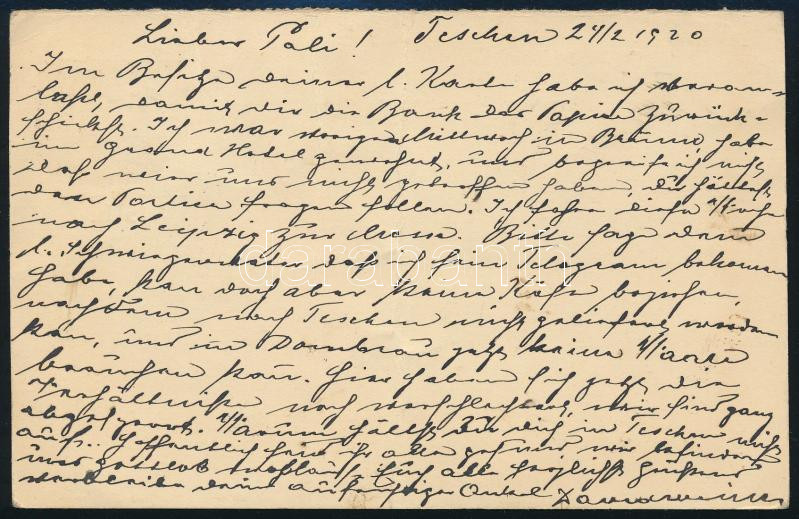 Lieber Pali! Teschen 24/2 1920
Im Besitze deiner l. Karte habe ich veran-
laßt, damit dir die Bank das Papier zurück-
schickt. Ich war vorigen Mittwoch in Brünn, habe
im Grand Hotel gewohnt, und begreife ich nicht
daß wir uns nicht getroffen haben, du hättest
den Portier fragen sollen. Ich fahre diese Woche
nach Leipzig zur Messe. Bitte sage dem
l. Schwiegervater, daß ich sein Telegram bekommen
habe, kan doch aber keine beziehen,
nachdem nach Teschen nicht geliefert werden
kan, und in Dombrau jetzt keine Waare
brauchen kan. Hier haben sich jetzt die
Verhältnisse noch verschlechtert, wir sind ganz
abgesperrt. Warum hältst du dich in Teschen nicht
auf. Hoffentlich seid ihr alle gesund, wir befinden
uns gottlob wohlauf, Euch alle herzlichst grüßend
verbleibe dein aufrichtiger Onkel
darabanth